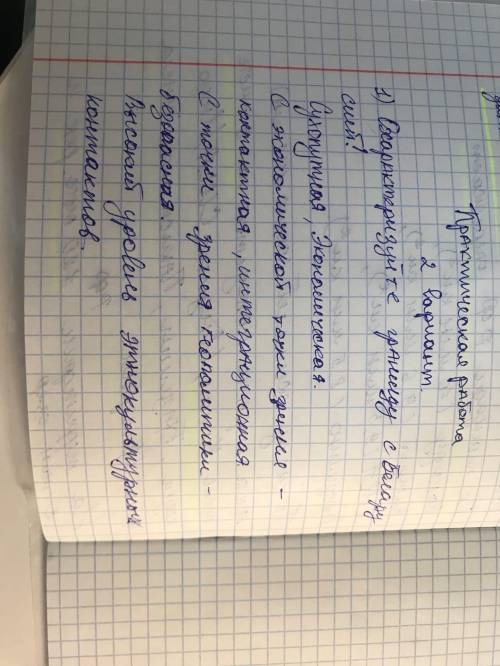 Практическая работа
2 вариант.
1) Охарактеризуйте границу с Белару
сией!
Сухопутная, Экономическая.
С экономической точки зрения –
контактная, интеграционная
С точки зрения геополитики –
безопасная.
Высокий уровень этнокультурных
контактов.